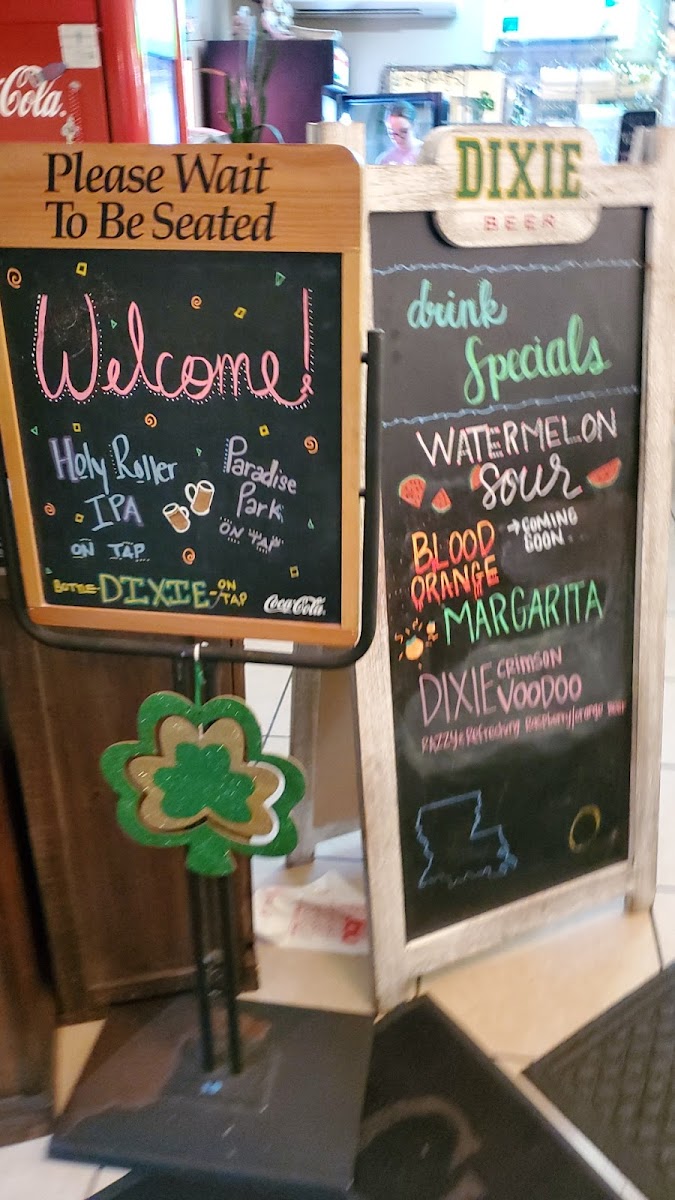 Coca-Cola.
Please Wait
To Be Seated
Welcome!
Holy Roller
IPA
ON TAP
Paradise
Park
ON TAP
BOTTLE-DIXIE-ON TAP
Coca-Cola.
DIXIE
BEER
drink
Specials
WATERMELON
Sour
→COMING
SOON
BLOOD
ORANGE
MARGARITA
DIXIE CRIMSON
VOODOO
RAZZy & Refreshing Raspberry/orange Beer